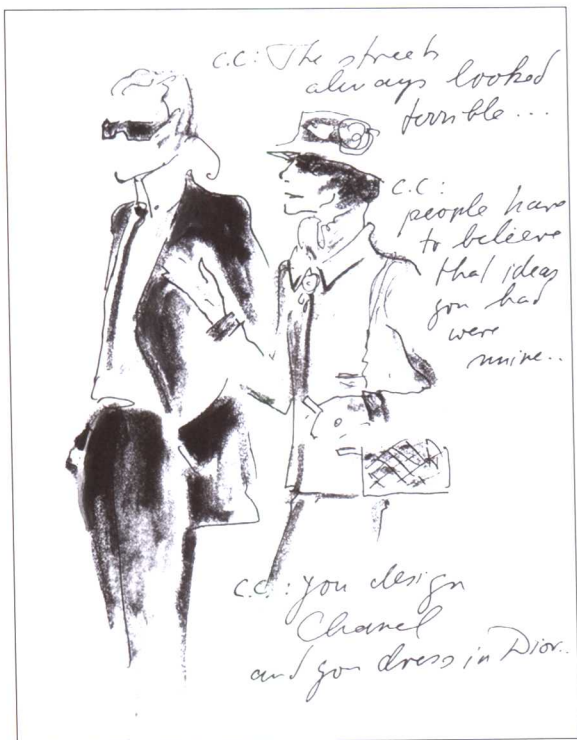 C.C: The streets
always looked
terrible...
C.C:
people have
to believe
that ideas
you had
were
mine..
C.C.: you design
Chanel
and you dress in Dior..